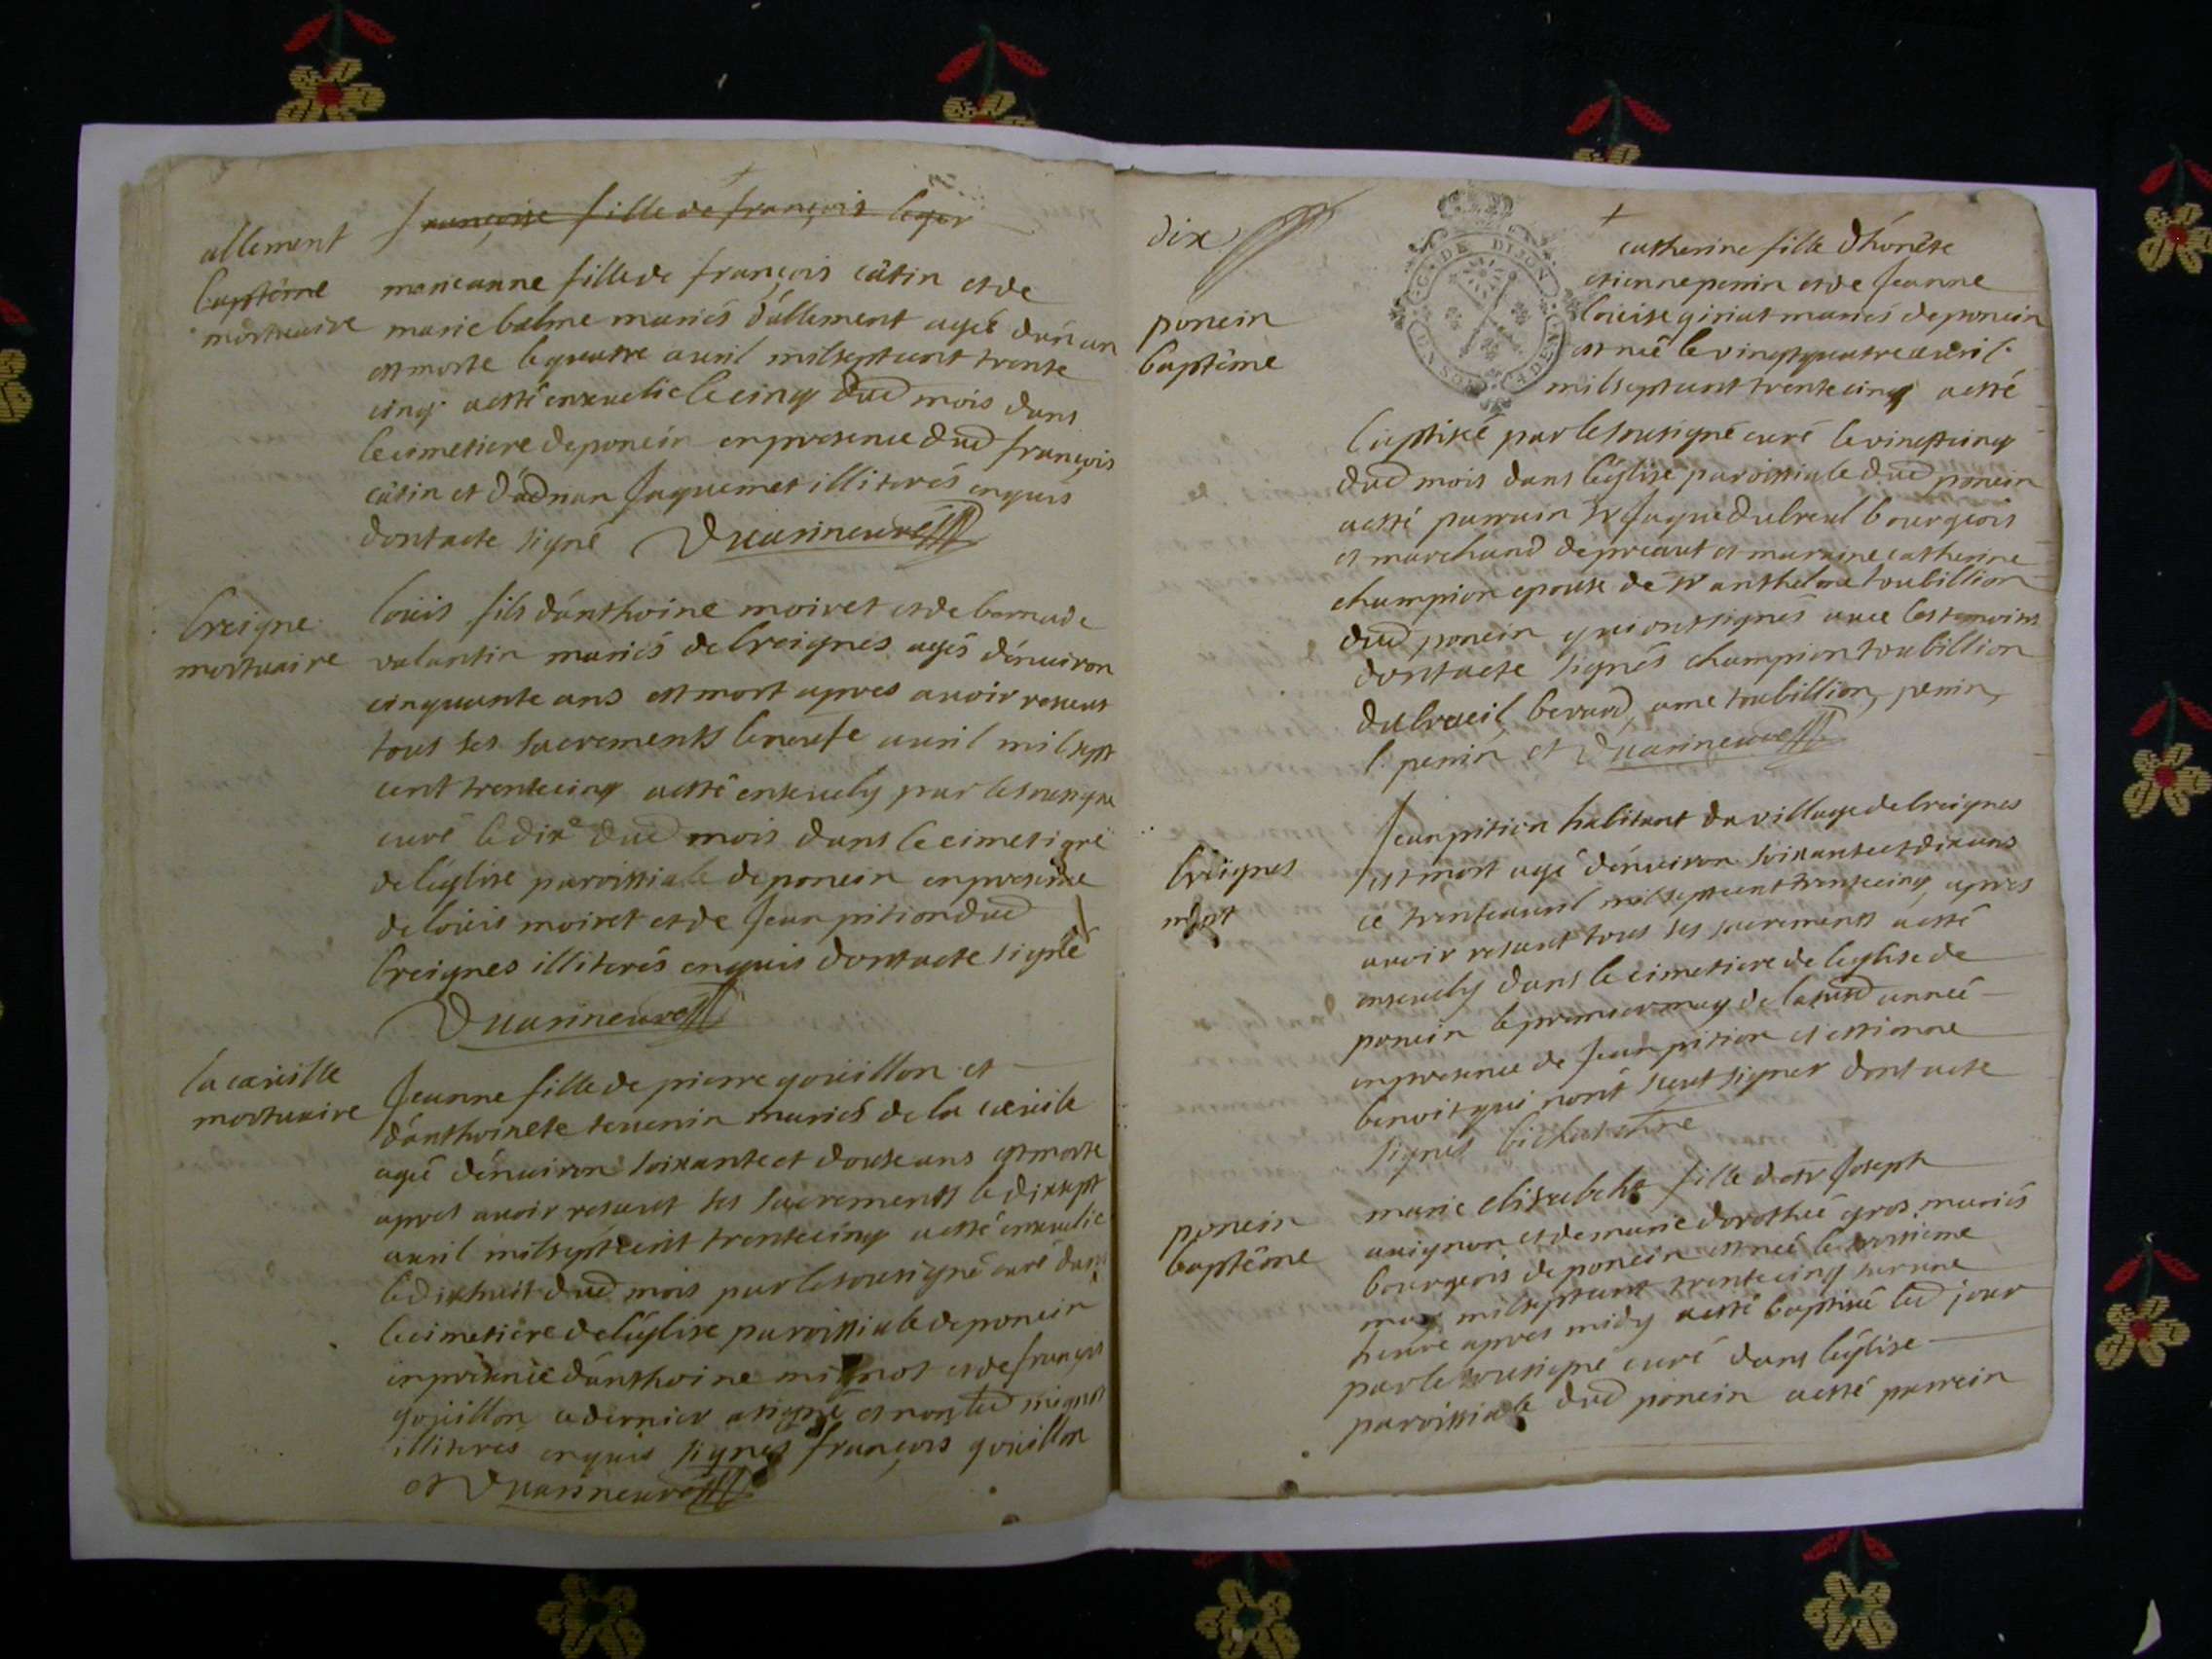 françoise fille de françois leger
allement
baptême
mortuaire
marieanne fille de françois câtin et de
marie balme mariés d'allement agée d'un an
est morte le quatre avril milseptcent trente
cinq a esté ensevelie le cinq dud mois dans
le cimetiere de poncin en presence dud françois
câtin et d'adnan Jaquemet illiterés enquis
dont acte signé Duarineuré
breigne
mortuaire
loüis fils d'anthoine moiret et de bernade
valantin mariés de breignes agés d'enuiron
cinquante ans est mort apres auoir reseut
tous ses sacrements le neufe auril mil sept
cent trentecinq a esté enseuely par le sousigné
curé le dix dud mois dans le cimetigre
de l'église paroissiale de poncin en presence
de loüis moiret et de Jean pition dud
breignes illiterés enquis dont acte signé
Duarineuré
la cœuille
mortuaire
Jeanne fille de pierre goüillon et
d'anthoinete teuenin mariés de la cœuile
agée d'enuiron soixante et douse ans est morte
apres auoir reseut ses sacrements le dixsept
auril milseptcent trentecinq a esté enseuelie
le dixhuit dud mois par le sousigné curé dans
le cimetiere de l'église paroissiale de poncin
en presence d'anthoine mignot et de françois
goüillon ce dernier a signé et non led mignot
illiterés enquis signés françois goüillon
et Duarineuré
dix
G. DE DIJON
poncin
baptême
catherine fille d'honéte
etienne perrin et de Jeanne
loüise giriat mariés de poncin
est née le vingtquatre auril
milseptcent trentecinq a esté
baptisée par le sousigné curé le vingtcinq
dud mois dans l'église paroissiale dud poncin
a esté parrain Sr Jaque dubreul bourgeois
et marchand de preaut et maraine catherine
champion epouse de Sr anthelme toubillion
dud poncin qui ont signés auec les temoins
dont acte signés champion toubillion
dubrueil, berard, ame toubillion, perrin,
l. perrin et Duarineuré
breignes
mort
Jean pition habitant du village de breignes
est mort agé d'enuiron soixante et dix ans
ce trente auril milseptcent trentecinq apres
auoir reseut tous ses sacrements a esté
enseuely dans le cimetiere de l'eglise de
poncin le premier may de lasusd année
en presence de Jean pition et estienne
benoit qui n'ont sceut signer dont acte
signés bichat
poncin
baptême
marie elisabeht fille de Sr Joseph
auignon et de marie dorothée gros mariés
bourgeois de poncin est née le troisieme
may milseptcent trentecinq sur une
heure apres midy a esté baptisée led jour
par le sousigné curé dans l'église
paroissiale dud poncin a esté parrein